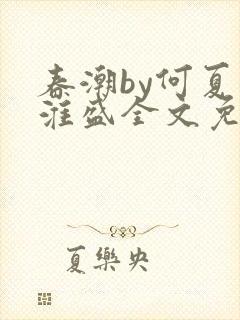 春潮by何夏
淮盛全文免
夏樂央